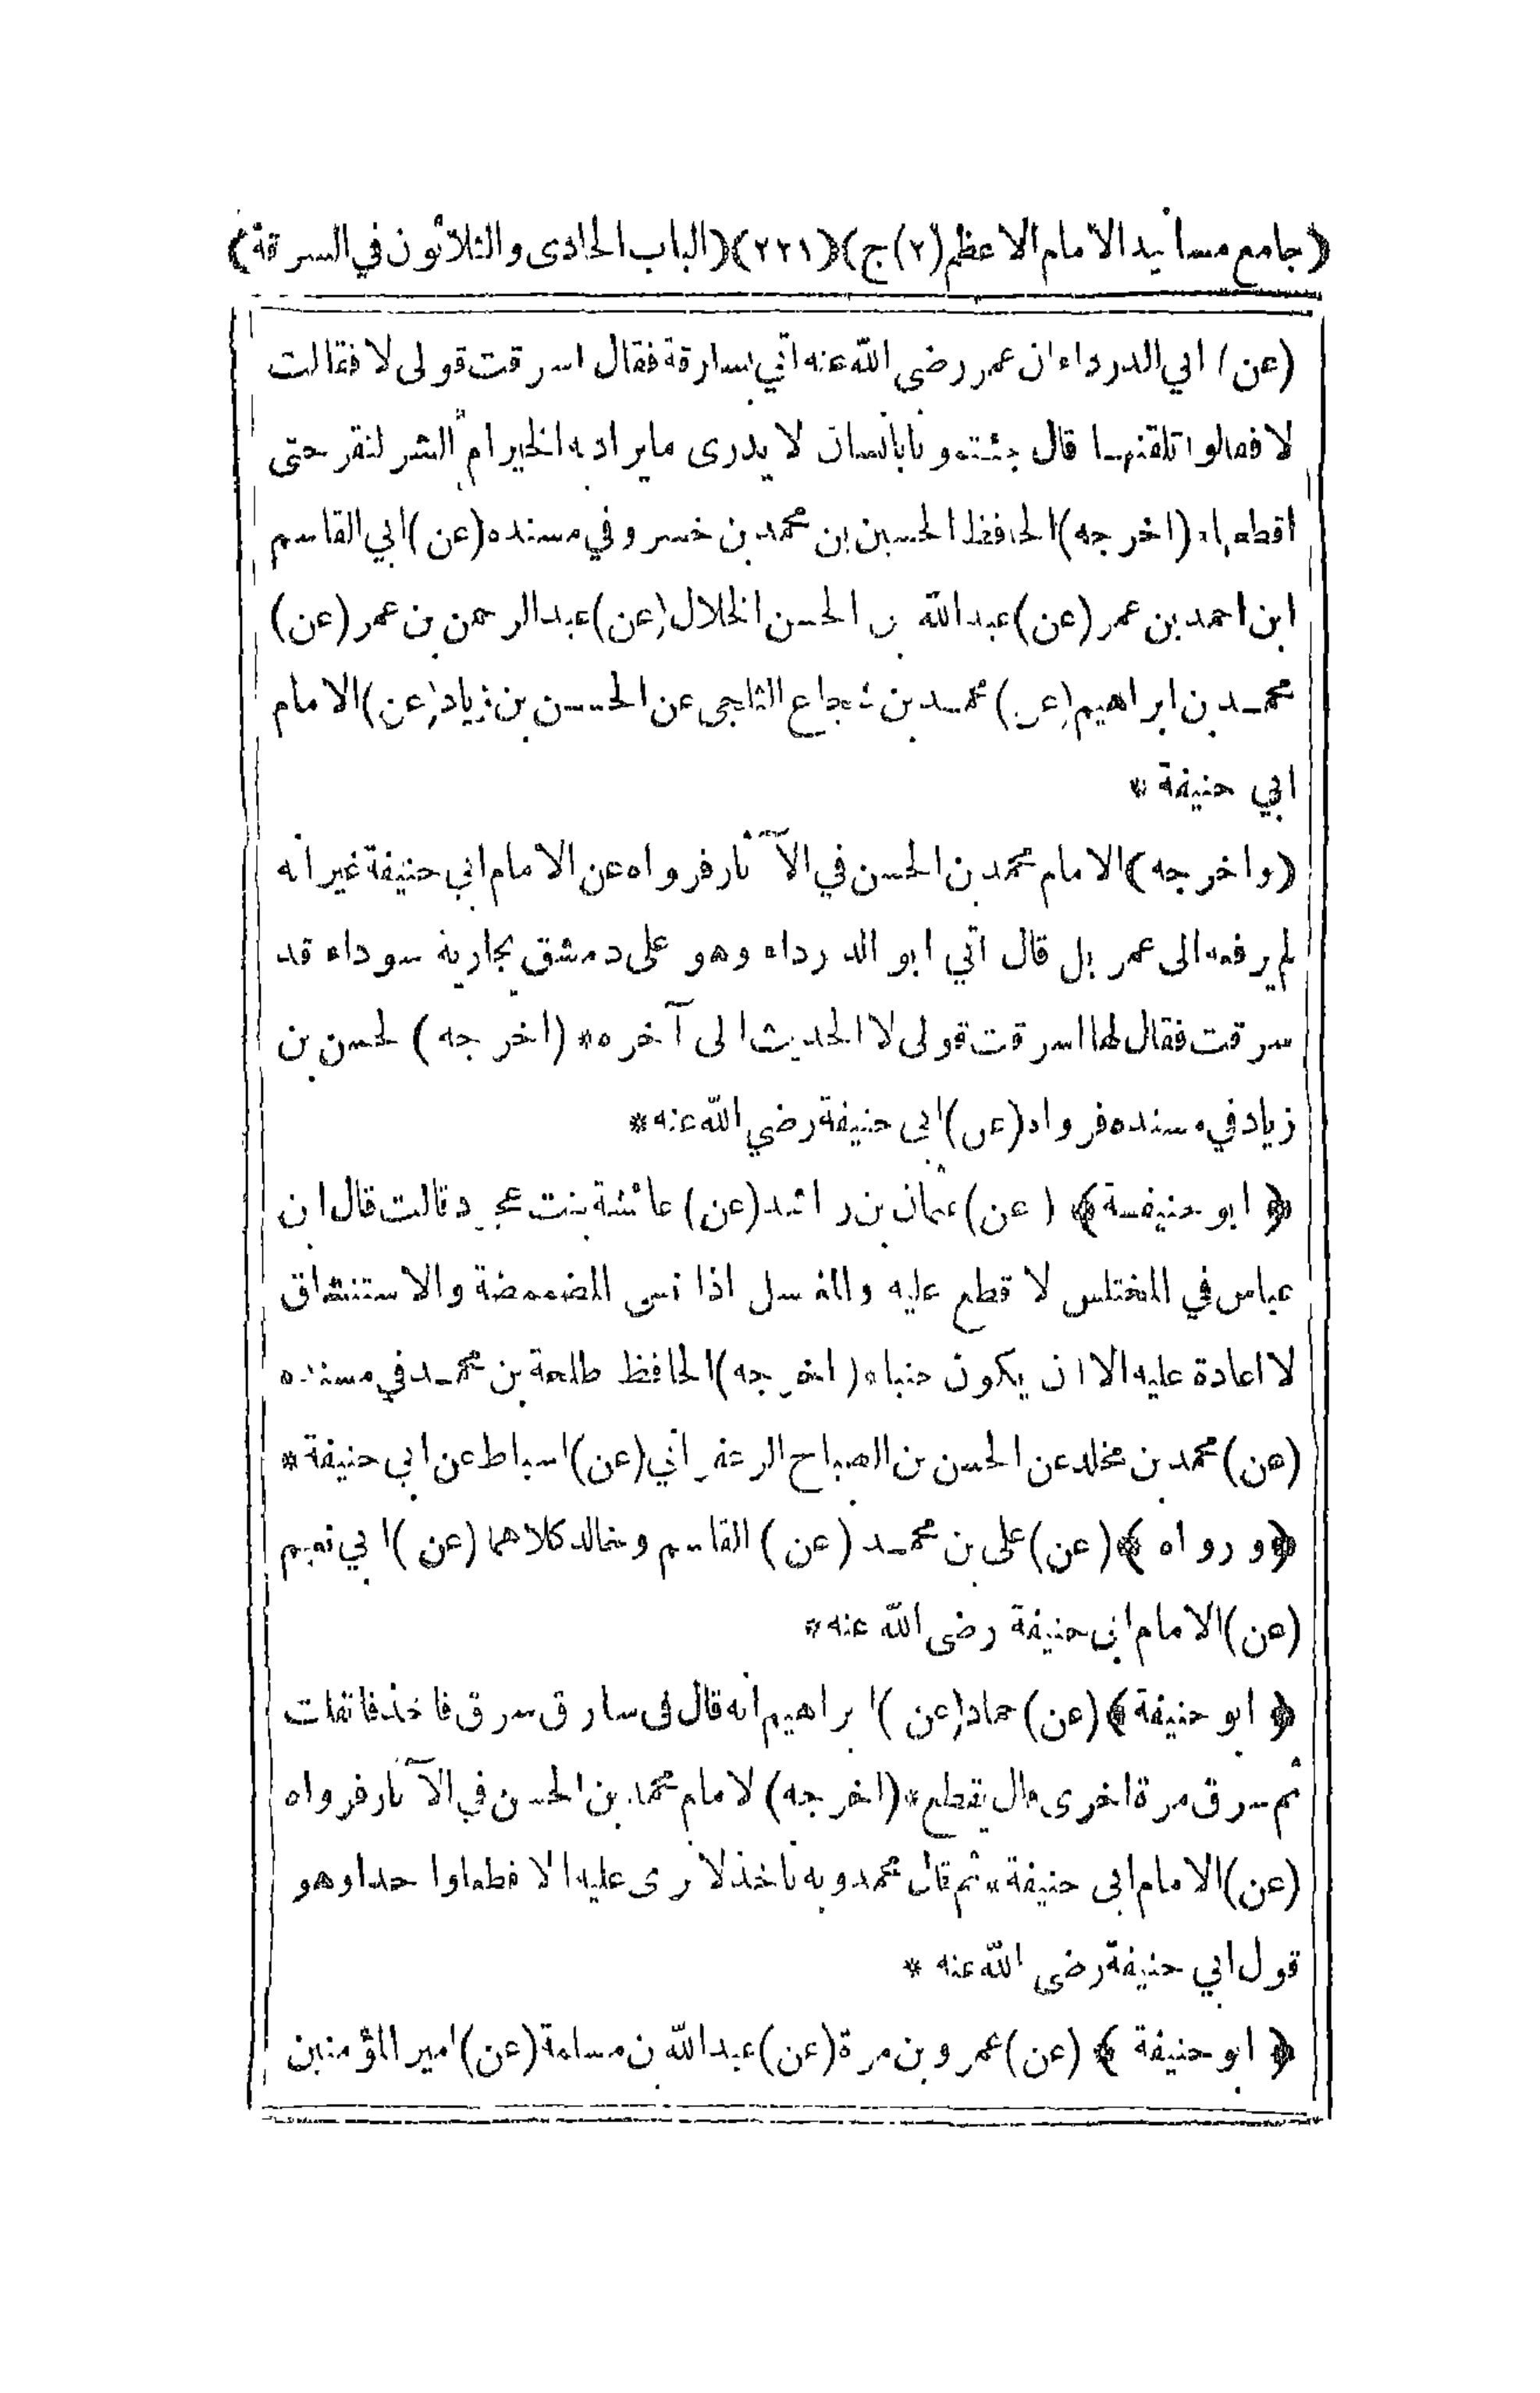 (جامع مسانيد الامام الاعظم (٢) ج) (٢٢١) (الباب الحادى والثلاثون في السرقة)
(عن) ابي الدرداء ان عمر رضى الله عنه اتي بسارقة فقال اسرقت قولى لا فقالت
لا فقالوا تلقنها قال جئتمونا بانسان لا يدرى ما يراد به الخير ام الشر لنقر حتى
اقطعها* (اخرجه) الحافظ الحسين بن محمد بن خسرو في مسنده (عن) ابي القاسم
ابن احمد بن عمر (عن) عبد الله بن الحسن الخلال (عن) عبد الرحمن بن عمر (عن)
محمد بن ابراهيم (عن) محمد بن شجاع الثلجى عن الحسن بن زياد (عن) الامام
ابي حنيفة *
(واخرجه) الامام محمد بن الحسن في الآثار فرواه عن الامام ابي حنيفة غير انه
لم يرفعه الى عمر بل قال اتي ابو الدرداء وهو على دمشق بجارية سوداء قد
سرقت فقال لها اسرقت قولى لا الحديث الى آخره * (اخرجه) لحسن بن
زياد في مسنده فرواه (عن) ابى حنيفة رضي الله عنه *
﴿ ابو حنيفة ﴾ (عن) عثمان بن راشد (عن) عائشة بنت عجرد قالت قال ابن
عباس في المختلس لا قطع عليه والغسل اذا نسى المضمضة والاستنشاق
لا اعادة عليه الا ان يكون جنبا * (اخرجه) الحافظ طلحة بن محمد في مسنده
(عن) محمد بن مخلد عن الحسن بن الصباح الزعفراني (عن) اسباط عن ابي حنيفة *
﴿ورواه﴾ (عن) على بن محمد (عن) القاسم وخالد كلاهما (عن) ابي نعيم
(عن) الامام ابى حنيفة رضى الله عنه *
﴿ ابو حنيفة ﴾ (عن) حماد (عن) ابراهيم انه قال فى سارق سرق فاخذ فانفلت
ثم سرق مرة اخرى قال يقطع * (اخرجه) لامام محمد بن الحسن في الآثار فرواه
(عن) الامام ابى حنيفة * ثم قال محمد وبه ناخذ لا نرى عليه الا قطعا واحدا وهو
قول ابي حنيفة رضى الله عنه *
﴿ ابو حنيفة ﴾ (عن) عمرو بن مرة (عن) عبد الله بن مسلمة (عن) امير المؤمنين